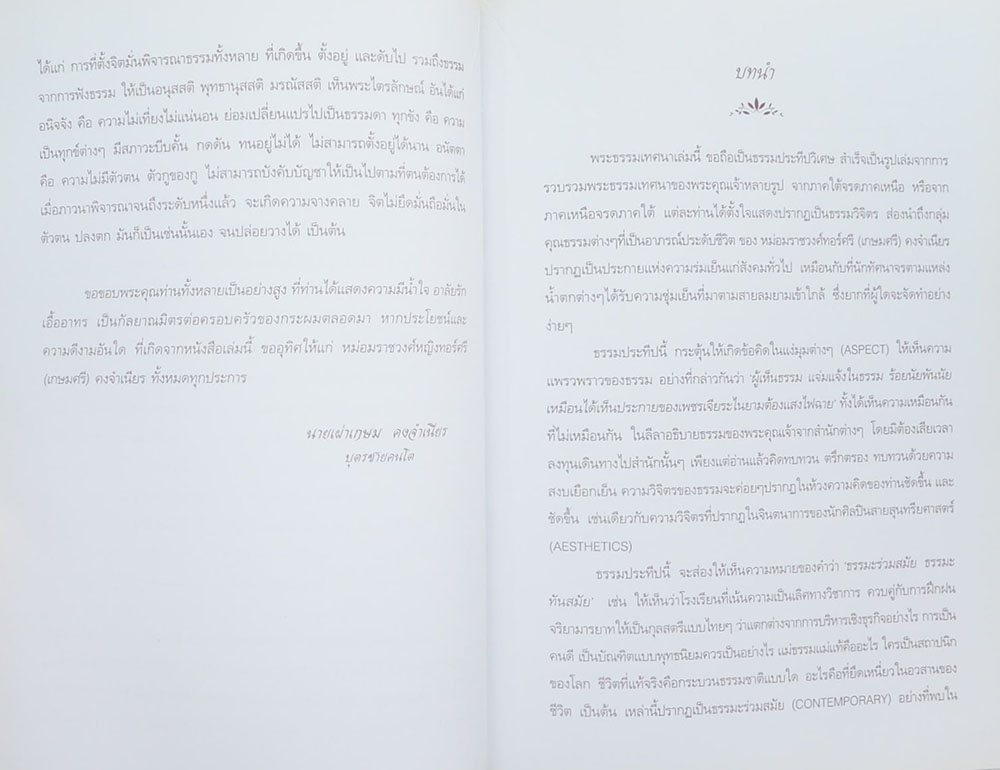 ได้แก่ การที่ตั้งจิตมั่นพิจารณาธรรมทั้งหลาย ที่เกิดขึ้น ตั้งอยู่ และดับไป รวมถึงธรรม
จากการฟังธรรม ให้เป็นอนุสสติ พุทธานุสสติ มรณัสสติ เห็นพระไตรลักษณ์ อันได้แก่
อนิจจัง คือ ความไม่เที่ยงไม่แน่นอน ย่อมเปลี่ยนแปรไปเป็นธรรมดา ทุกขัง คือ ความ
เป็นทุกข์ต่างๆ มีสภาวะบีบคั้น กดดัน ทนอยู่ไม่ได้ ไม่สามารถตั้งอยู่ได้นาน อนัตตา
คือ ความไม่มีตัวตน ตัวกูของกู ไม่สามารถบังคับบัญชาให้เป็นไปตามที่ตนต้องการได้
เมื่อภาวนาพิจารณาจนถึงระดับหนึ่งแล้ว จะเกิดความจางคลาย จิตไม่ยึดมั่นถือมั่นใน
ตัวตน ปลงตก มันก็เป็นเช่นนั้นเอง จนปล่อยวางได้ เป็นต้น
ขอขอบพระคุณท่านทั้งหลายเป็นอย่างสูง ที่ท่านได้แสดงความมีน้ำใจ อาลัยรัก
เอื้ออาทร เป็นกัลยาณมิตรต่อครอบครัวของกระผมตลอดมา หากประโยชน์และ
ความดีงามอันใด ที่เกิดจากหนังสือเล่มนี้ ขออุทิศให้แก่ หม่อมราชวงศ์หญิงทอร์ศรี
(เกษมศรี) คงจำเนียร ทั้งหมดทุกประการ
นายเผ่าเกษม คงจำเนียร
บุตรชายคนโต
บทนำ
พระธรรมเทศนาเล่มนี้ ขอถือเป็นธรรมประทีปวิเศษ สำเร็จเป็นรูปเล่มจากการ
รวบรวมพระธรรมเทศนาของพระคุณเจ้าหลายรูป จากภาคใต้จรดภาคเหนือ หรือจาก
ภาคเหนือจรดภาคใต้ แต่ละท่านได้ตั้งใจแสดงปรากฏเป็นธรรมวิจิตร ส่องนำถึงกลุ่ม
คุณธรรมต่างๆที่เป็นอาภรณ์ประดับชีวิต ของ หม่อมราชวงศ์ทอร์ศรี (เกษมศรี) คงจำเนียร
ปรากฏเป็นประกายแห่งความร่มเย็นแก่สังคมทั่วไป เหมือนกับที่นักทัศนาจรตามแหล่ง
น้ำตกต่างๆได้รับความชุ่มเย็นที่มาตามสายลมยามเข้าใกล้ ซึ่งยากที่ผู้ใดจะจัดทำอย่าง
ง่ายๆ
ธรรมประทีปนี้ กระตุ้นให้เกิดข้อคิดในแง่มุมต่างๆ (ASPECT) ให้เห็นความ
แพรวพราวของธรรม อย่างที่กล่าวกันว่า 'ผู้เห็นธรรม แจ่มแจ้งในธรรม ร้อยนัยพันนัย
เหมือนได้เห็นประกายของเพชรเจียระไนยามต้องแสงไฟฉาย' ทั้งได้เห็นความเหมือนกัน
ที่ไม่เหมือนกัน ในลีลาอธิบายธรรมของพระคุณเจ้าจากสำนักต่างๆ โดยมิต้องเสียเวลา
ลงทุนเดินทางไปสำนักนั้นๆ เพียงแต่อ่านแล้วคิดทบทวน ตรึกตรอง ทบทวนด้วยความ
สงบเยือกเย็น ความวิจิตรของธรรมจะค่อยๆปรากฏในห้วงความคิดของท่านชัดขึ้น และ
ชัดขึ้น เช่นเดียวกับความวิจิตรที่ปรากฏในจินตนาการของนักศิลปินสายสุนทรียศาสตร์
(AESTHETICS)
ธรรมประทีปนี้ จะส่องให้เห็นความหมายของคำว่า 'ธรรมะร่วมสมัย ธรรมะ
ทันสมัย' เช่น ให้เห็นว่าโรงเรียนที่เน้นความเป็นเลิศทางวิชาการ ควบคู่กับการฝึกฝน
จริยามารยาทให้เป็นกุลสตรีแบบไทยๆ ว่าแตกต่างจากการบริหารเชิงธุรกิจอย่างไร การเป็น
คนดี เป็นบัณฑิตแบบพุทธนิยมควรเป็นอย่างไร แม่ธรรมแม่แท้คืออะไร ใครเป็นสถาปนิก
ของโลก ชีวิตที่แท้จริงคือกระบวนธรรมชาติแบบใด อะไรคือที่ยึดเหนี่ยวในอวสานของ
ชีวิต เป็นต้น เหล่านี้ปรากฏเป็นธรรมะร่วมสมัย (CONTEMPORARY) อย่างที่พบใน